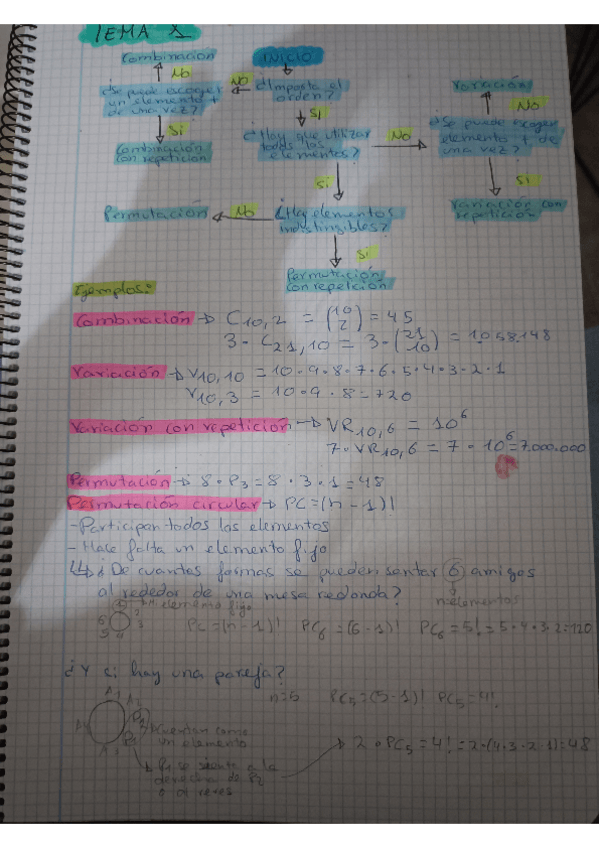 TEMA 1
Combinación
INICIO
No
¿Se puede escoger
un elemento +
de una vez?
No
¿Importa el
orden?
Variación
No
Si
Si
¿Hay que utilizar
todos los
elementos?
No
¿Se puede escoger
elemento + de
una vez?
Combinación
con repetición
Si
Si
Permutación
No
¿Hay elementos
indistingibles?
Variación con
repetición
Si
Permutación
con repetición
Ejemplos:
Combinación → C10,2 = (10 2) = 45
3·C21,10 = 3·(21 10) = 1.058.148
Variación → V10,10 = 10·9·8·7·6·5·4·3·2·1
V10,3 = 10·9·8=720
Variación con repetición → VR10,6 = 10^6
7·VR10,6 = 7·10^6=7.000.000
Permutación → 8·P3=8·3·1=48
Permutación circular → PC=(n-1)!
-Participan todos los elementos
-Hace falta un elemento fijo
¿De cuantas formas se pueden sentar 6 amigos
al rededor de una mesa redonda?
n elementos
elemento fijo
PC=(n-1)! PC6=(6-1)! PC6=5!=5·4·3·2=120
¿Y si hay una pareja?
n=5 PC5=(5-1)! PC5=4!
Cuentan como
un elemento
2·PC5=4!=2·(4·3·2·1)=48
P1 se sienta a la
derecha de P2
o al reves